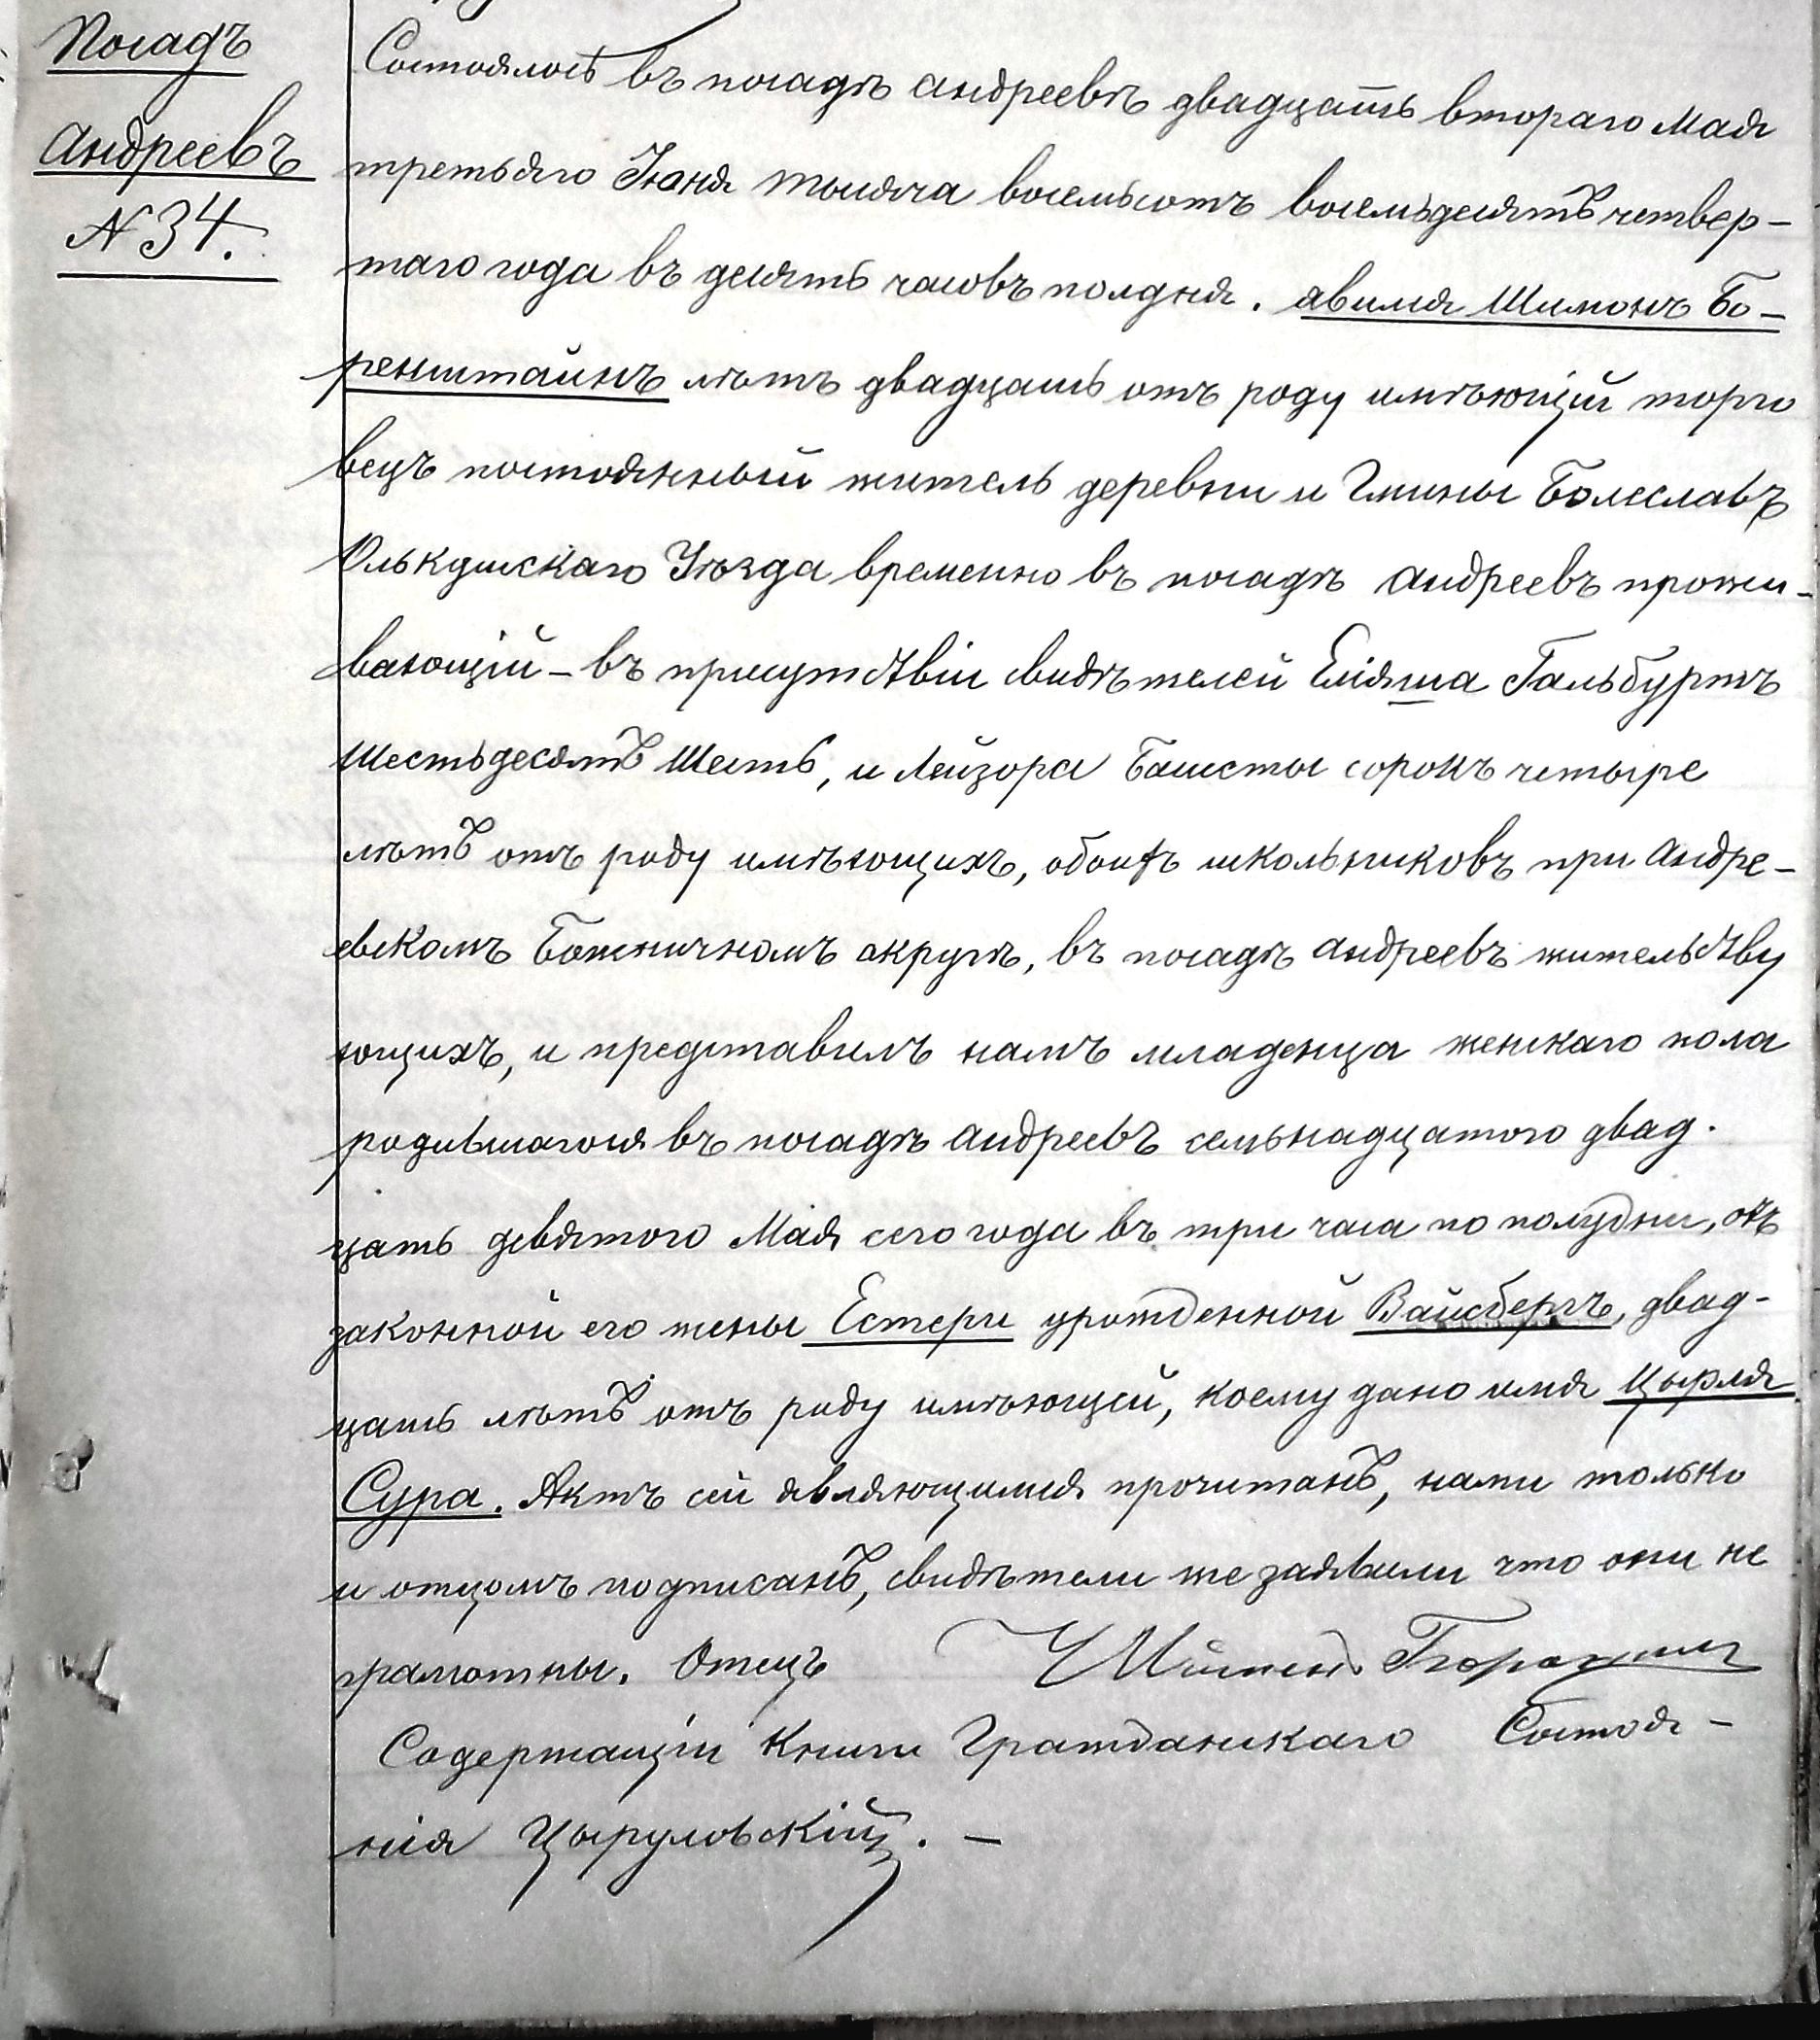 Посадъ
Андреевъ
N 34.
Состоялось въ посадѣ Андреевѣ двадцать втораго Мая
третьяго Іюня тысяча восемьсотъ восемьдесятъ четвер-
таго года въ десять часовъ полдня. явился Шимонъ Бо-
ренштайнъ лѣтъ двадцать отъ роду имѣющій торго
вецъ постоянный житель деревни и Гмины Болеславъ
Олькушскаго Уѣзда временно въ посадѣ Андреевъ прожи-
вающій - въ присутствіи свидѣтелей Еліяша Гальбуртъ
шестьдесятъ шесть, и Лейзора Башсты сорокъ четыре
лѣтъ отъ роду имѣющихъ, обоихъ школьниковъ при Андре-
евскомъ Божничномъ округѣ, въ посадѣ Андреевъ жительству
ющихъ, и представилъ намъ младенца женскаго пола
родившагося въ посадѣ Андреевъ семьнадцатого двад.
цать девятого Мая сего года въ три часа по полудни, отъ
законной его жены Естери урожденной Вайсбергъ, двад-
цать лѣтъ отъ роду имѣющей, коему дано имя Цырля
Сура. Актъ сей являющимся прочитанъ, нами только
и отцомъ подписанъ, свидѣтели же заявили что они не
грамотны. Отецъ
Содержащій книги Гражданскаго Состоя-
нія Цыруловскій. -